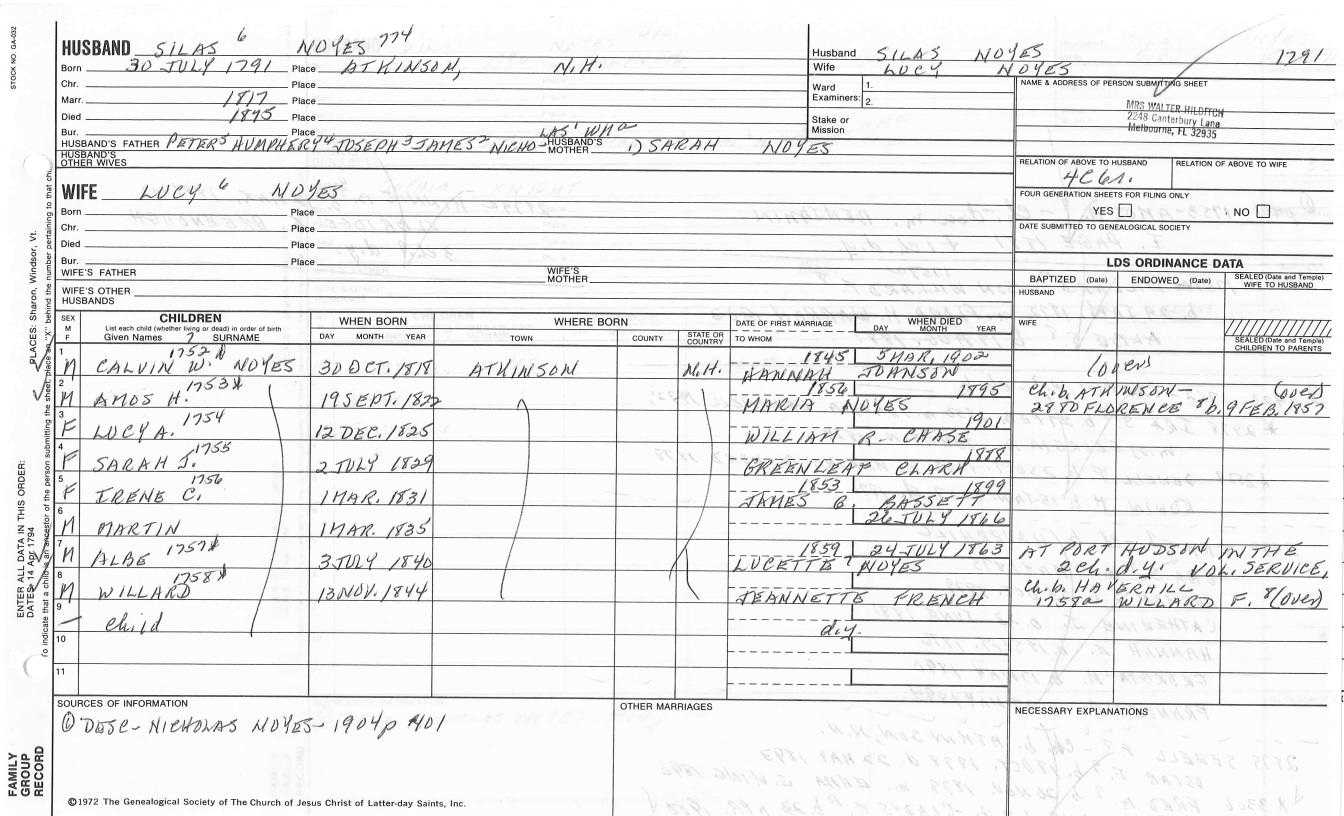 STOCK NO. GA-032
HUSBAND SILAS 6 NOYES 774
Born 30 JULY 1791 Place ATKINSON, N.H.
Chr. Place
Marr. 1817 Place
Died 1875 Place
Bur. Place
LAS' WM a
HUSBAND'S FATHER PETER 5 HUMPHERY 4 JOSEPH 3 JAMES 2 NICHO- HUSBAND'S MOTHER 1) SARAH NOYES
HUSBAND'S OTHER WIVES
Husband SILAS NOYES 1791
Wife LUCY NOYES
Ward Examiners: 1.
2.
Stake or Mission
NAME & ADDRESS OF PERSON SUBMITTING SHEET
MRS WALTER HILDITCH
2248 Canterbury Lane
Melbourne, FL 32935
RELATION OF ABOVE TO HUSBAND RELATION OF ABOVE TO WIFE
4C6r.
FOUR GENERATION SHEETS FOR FILING ONLY
YES NO
DATE SUBMITTED TO GENEALOGICAL SOCIETY
WIFE LUCY 6 NOYES
Born Place
Chr. Place
Died Place
Bur. Place
WIFE'S FATHER WIFE'S MOTHER
WIFE'S OTHER HUSBANDS
LDS ORDINANCE DATA
BAPTIZED (Date) ENDOWED (Date) SEALED (Date and Temple) WIFE TO HUSBAND
HUSBAND
WIFE
SEALED (Date and Temple) CHILDREN TO PARENTS
SEX M F
CHILDREN
List each child (whether living or dead) in order of birth
Given Names 7 SURNAME
WHEN BORN
DAY MONTH YEAR
WHERE BORN
TOWN COUNTY STATE OR COUNTRY
DATE OF FIRST MARRIAGE
TO WHOM
WHEN DIED
DAY MONTH YEAR
1 M CALVIN W. 1752 NOYES 30 OCT. 1818 ATKINSON N.H. 1845 5 MAR. 1902
HANNAH JOHNSON (over)
2 M AMOS H. 1753 19 SEPT. 1822 1856 1895 Ch. b. ATKINSON- (over)
MARIA NOYES 2980 FLORENCE 8 b. 9 FEB. 1857
3 F LUCY A. 1754 12 DEC. 1825 1901
WILLIAM R. CHASE
4 F SARAH J. 1755 2 JULY 1829 1888
GREENLEAF CLARK
5 F IRENE C. 1756 1 MAR. 1831 1853 1899
JAMES B. BASSETT
6 M MARTIN 1 MAR. 1835 26 JULY 1866
7 M ALBE 1757 3 JULY 1840 1859 24 JULY 1863 AT PORT HUDSON IN THE
LUCETTE 7 NOYES 2 Ch. d.y. VOL. SERVICE,
8 M WILLARD 1758 13 NOV. 1844 Ch. b. HAVERHILL
JEANNETTE FRENCH 1758a WILLARD F. 8 (over)
9 - child d.y.
10
11
SOURCES OF INFORMATION OTHER MARRIAGES NECESSARY EXPLANATIONS
① DESC- NICHOLAS NOYES- 1904 p 401
©1972 The Genealogical Society of The Church of Jesus Christ of Latter-day Saints, Inc.
FAMILY GROUP RECORD
ENTER ALL DATA IN THIS ORDER:
DATES: 14 Apr 1794
PLACES: Sharon, Windsor, Vt.
To indicate that a child is an ancestor of the person submitting the sheet, place an "X" behind the number pertaining to that